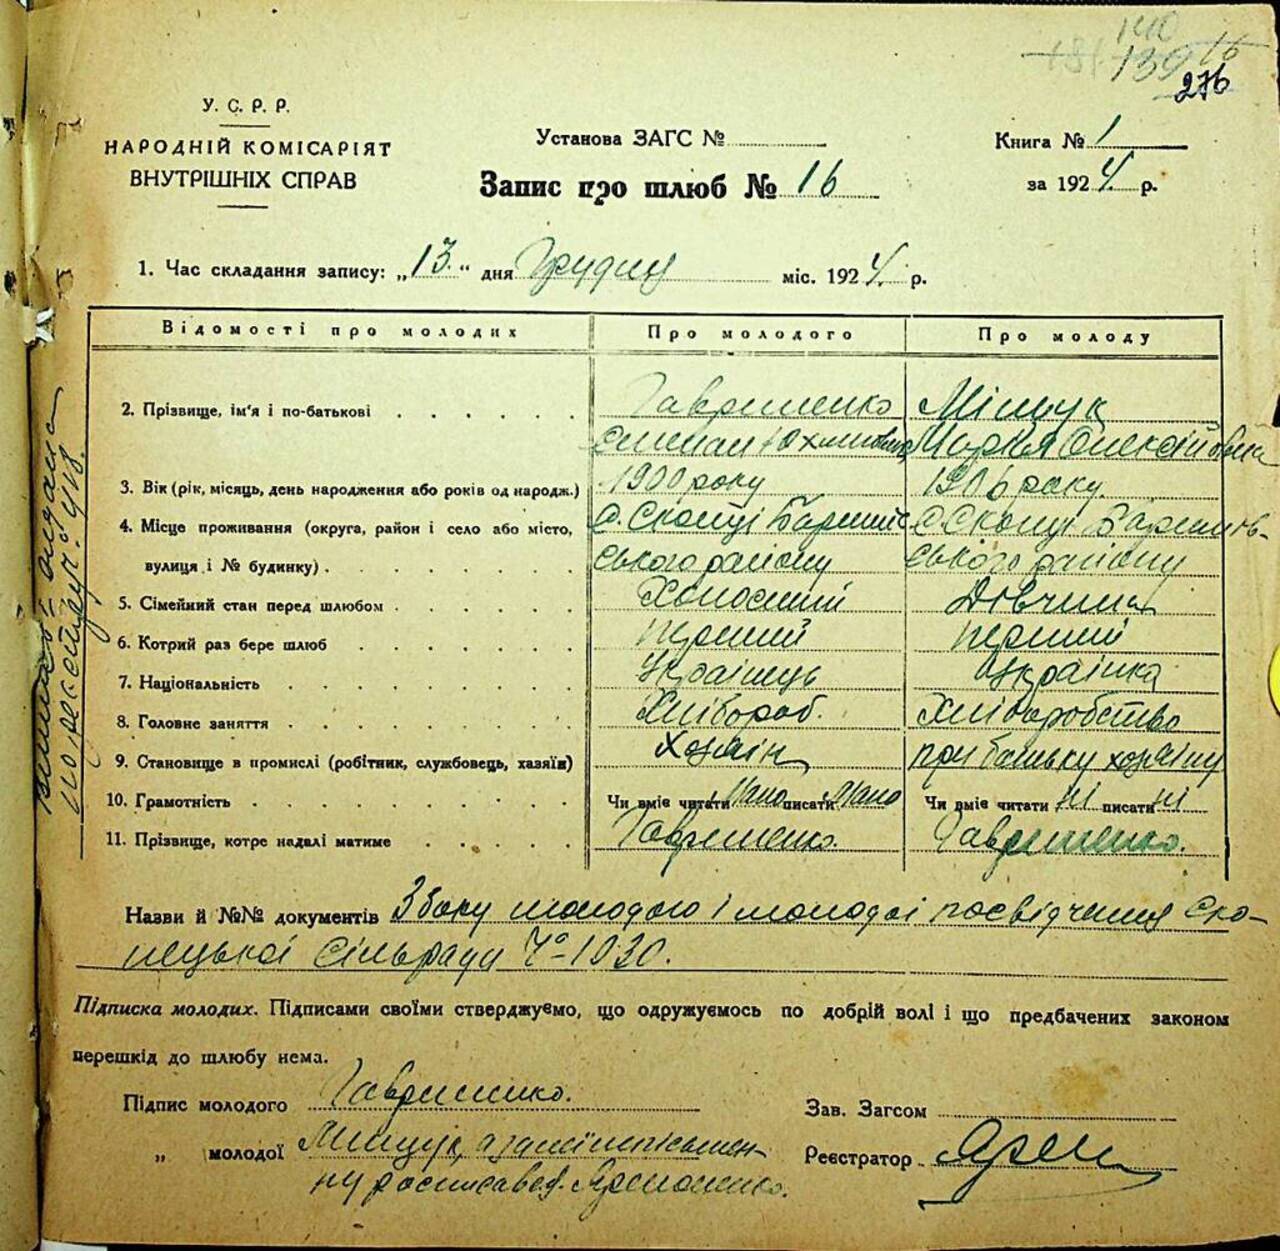 140
181 139 16
276
У. С. Р. Р.
НАРОДНІЙ КОМІСАРІЯТ
ВНУТРІШНІХ СПРАВ
Установа ЗАГС №
Запис про шлюб № 16
Книга № 1
за 1924 р.
1. Час складання запису: „13“ дня Грудня міс. 1924 р.
Відомості про молодих Про молодого Про молоду
2. Прізвище, ім'я і по-батькові Гавриленко Міщук
Юхимович Марія Олексіївна
3. Вік (рік, місяць, день народження або років од народж.) 1900 року 1906 року.
4. Місце проживання (округа, район і село або місто, с. Скопці Баришів- с. Скопці Баришів-
вулиця і № будинку) ського району ського району
5. Сімейний стан перед шлюбом Холостий Дівчина
6. Котрий раз бере шлюб перший перший
7. Національність Українець Українка
8. Головне заняття Хлібороб. Хліборобство
9. Становище в промислі (робітник, службовець, хазяїн) хозяін при батьку хозяіну
10. Грамотність Чи вміє читати Мало писати Мало Чи вміє читати ні писати ні
11. Прізвище, котре надалі матиме Гавриленко. Гавриленко.
Назви й №№ документів З боку молодого і молодої посвідчення Ско-
пецької Сільради Ч-1030.
Підписка молодих. Підписами своїми стверджуємо, що одружуємось по добрій волі і що предбачених законом
перешкід до шлюбу нема.
Підпис молодого Гавриленко.
Зав. Загсом
„ молодої Мищук, а за неї неписьмен-
ну росписався
Реєстратор